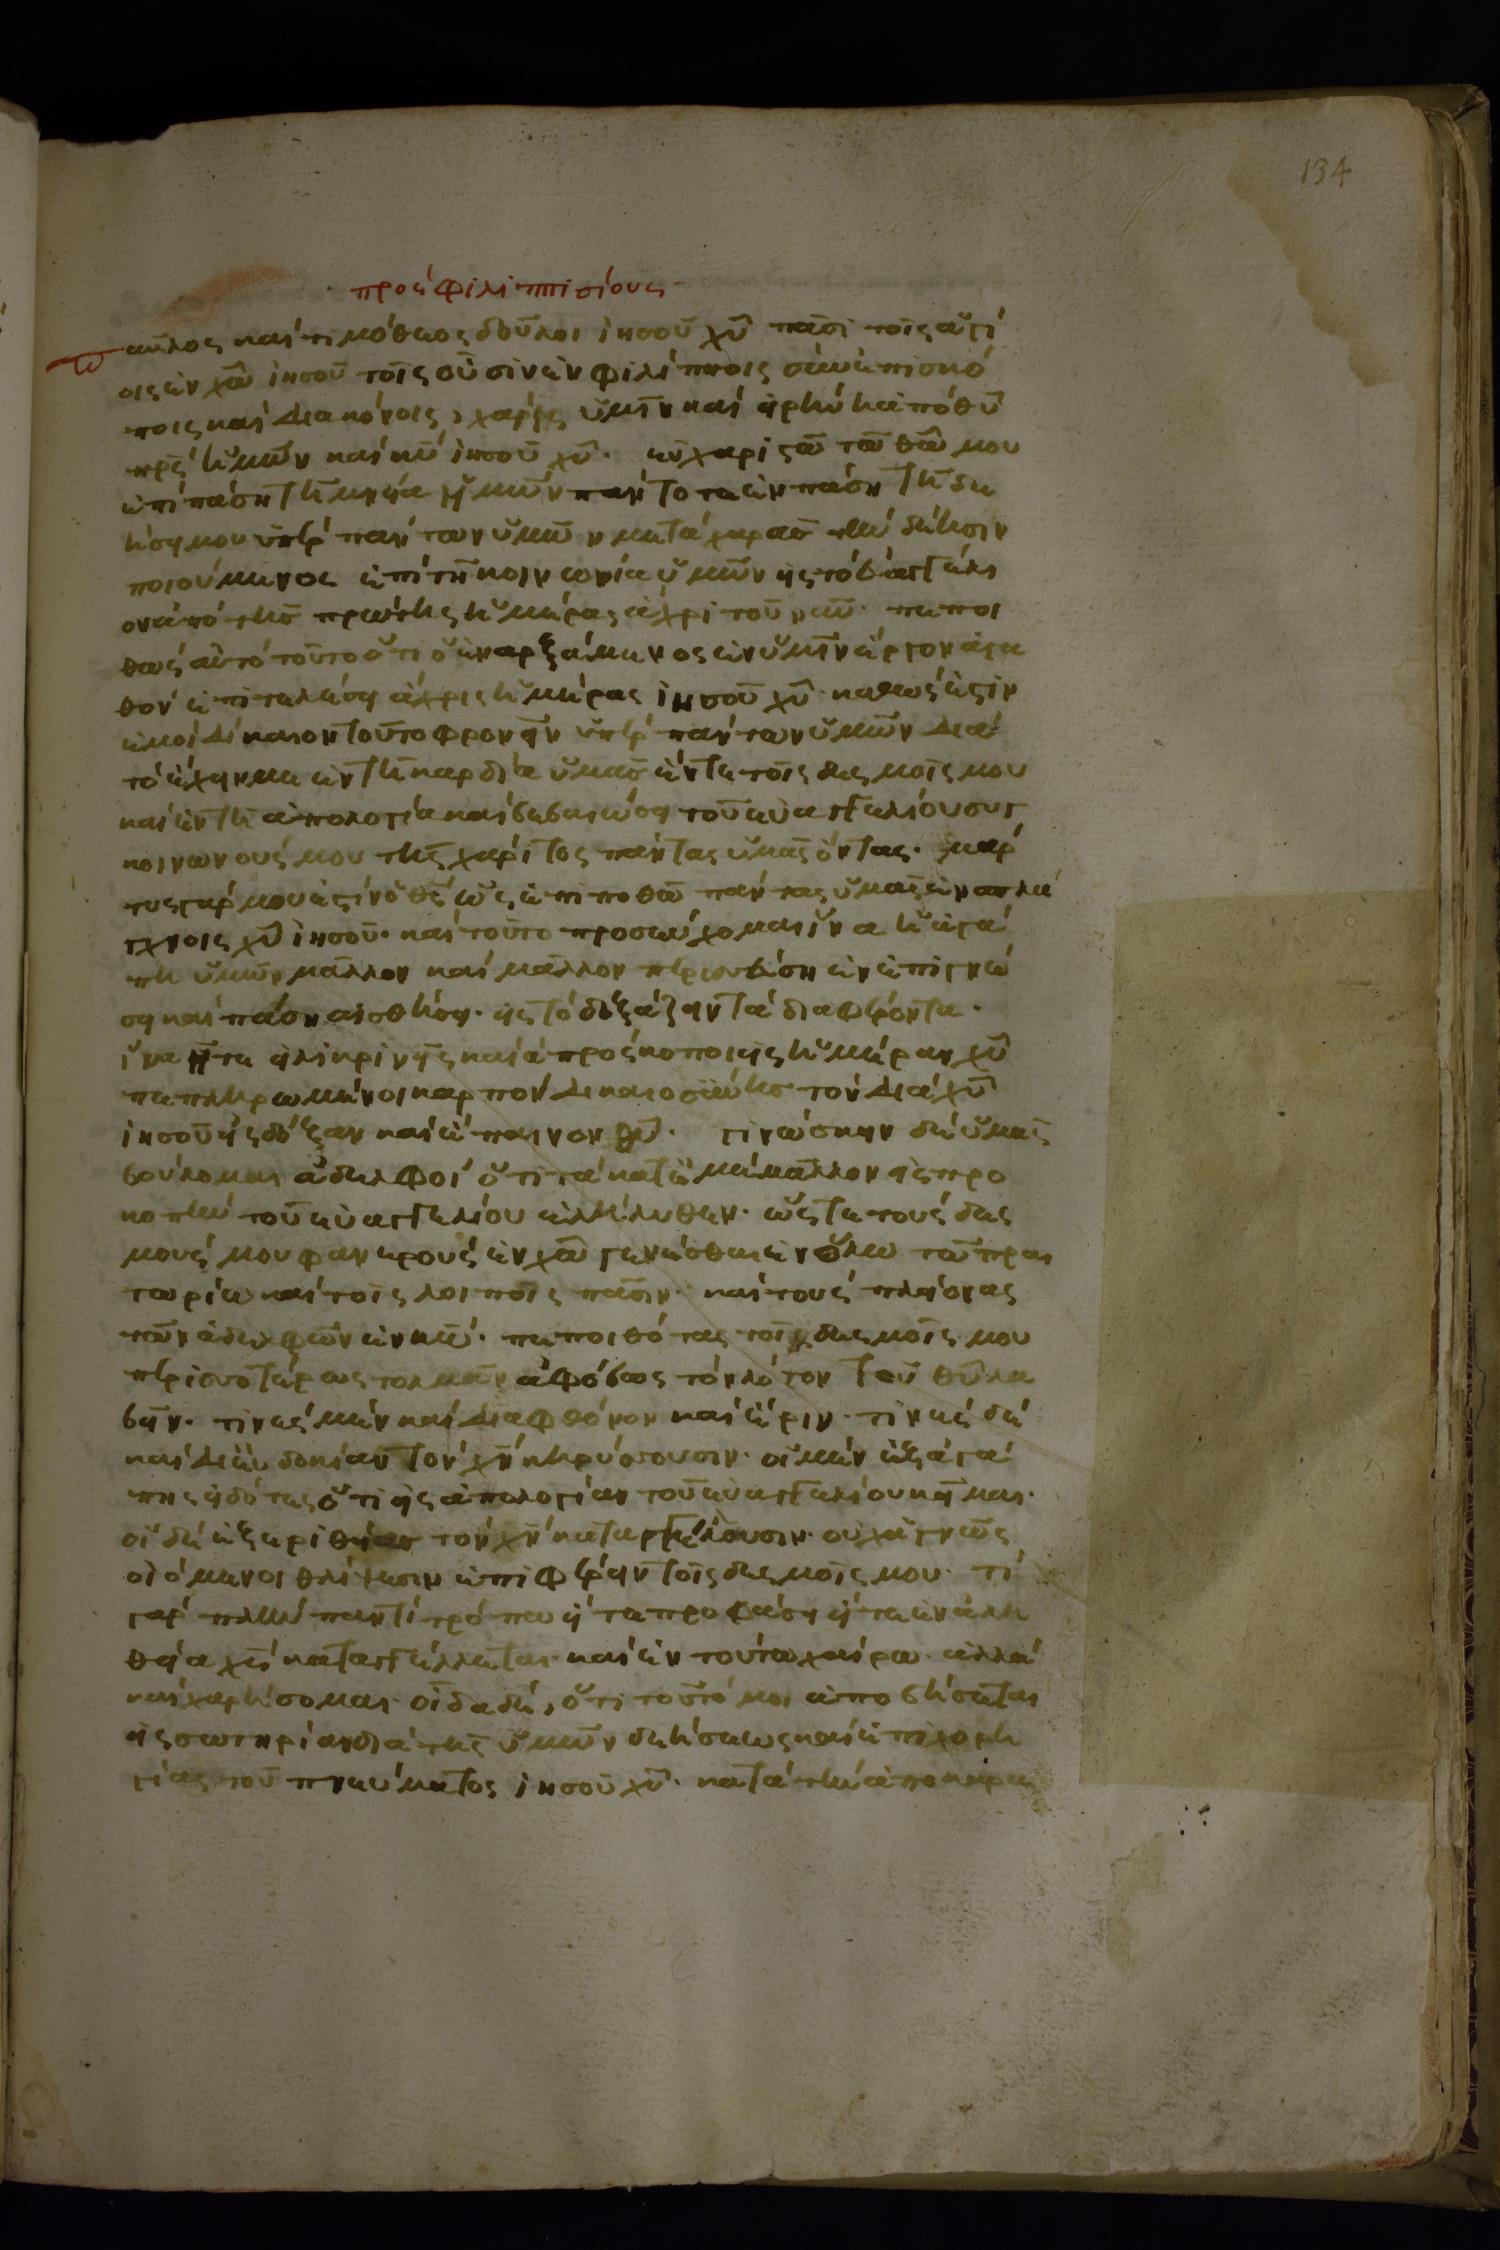 134
πρὸς φιλιππισίους
παῦλος καὶ τιμόθεος δοῦλοι ἰησοῦ χῦ πᾶσι τοῖς ἁγί
οις ἐν χῶ ἰησοῦ τοῖς οὖσιν ἐν φιλίπποις σὺν ἐπισκό
ποις καὶ διακόνοις, χάρις ὑμῖν καὶ εἰρήνη ἀπὸ θῦ
πρς ἡμῶν καὶ κυ ἰησοῦ χῦ. εὐχαριστῶ τῶ θῶ μου
ἐπὶ πάση τῆ μνεία ὑμῶν πάντοτε ἐν πάση τῆ δε
ήσει μου ὑπὲρ πάντων ὑμῶν μετὰ χαρᾶς τὴν δέησιν
ποιούμενος ἐπὶ τῆ κοινωνία ὑμῶν εἰς τὸ εὐαγγέλι
ον ἀπὸ τῆς πρώτης ἡμέρας ἄχρι τοῦ νῦν. πεποι
θὼς αὐτὸ τοῦτο ὅτι ὁ ἐναρξάμενος ἐν ὑμῖν ἔργον ἀγα
θὸν ἐπιτελέσει ἄχρις ἡμέρας ἰησοῦ χῦ. καθώς ἐστιν
ἐμοὶ δίκαιον τοῦτο φρονεῖν ὑπὲρ πάντων ὑμῶν διὰ
τὸ ἔχειν με ἐν τῆ καρδία ὑμᾶς ἔν τε τοῖς δεσμοῖς μου
καὶ ἐν τῆ ἀπολογία καὶ βεβαιώσει τοῦ εὐαγγελίου συγ
κοινωνούς μου τῆς χάριτος πάντας ὑμᾶς ὄντας. μάρ
τυς γάρ μου ἐστὶν ὁ θς ὡς ἐπιποθῶ πάντας ὑμᾶς ἐν σπλά
γχνοις χῦ ἰησοῦ. καὶ τοῦτο προσεύχομαι ἵνα ἡ ἀγά
πη ὑμῶν μᾶλλον καὶ μᾶλλον περισσεύση ἐν ἐπιγνώ
σει καὶ πάση αἰσθήσει. εἰς τὸ δοξάζειν τὰ διαφέροντα.
ἵνα ἦτε εἰλικρινεῖς καὶ ἀπρόσκοποι εἰς ἡμέραν χῦ
πεπληρωμένοι καρπὸν δικαιοσύνης τὸν διὰ χῦ
ἰησοῦ εἰς δόξαν καὶ ἔπαινον θῦ. γινώσκειν δὲ ὑμᾶς
βούλομαι ἀδελφοὶ ὅτι τὰ κατ ἐμὲ μᾶλλον εἰς προ
κοπὴν τοῦ εὐαγγελίου ἐλήλυθεν. ὥστε τοὺς δεσ
μούς μου φανεροὺς ἐν χῶ γενέσθαι ἐν ὅλω τῶ πραι
τωρίω καὶ τοῖς λοιποῖς πᾶσιν. καὶ τοὺς πλείονας
τῶν ἀδελφῶν ἐν κῶ. πεποιθότας τοῖς δεσμοῖς μου
περισσοτέρως τολμᾶν ἀφόβως τὸν λόγον τοῦ θῦ λα
λεῖν. τινὲς μὲν καὶ διὰ φθόνον καὶ ἔριν. τινὲς δὲ
καὶ δι εὐδοκίαν τὸν χν κηρύσσουσιν. οἱ μὲν ἐξ ἀγά
πης εἰδότες ὅτι εἰς ἀπολογίαν τοῦ εὐαγγελίου κεῖμαι.
οἱ δὲ ἐξ ἐριθείας τὸν χν καταγγέλλουσιν. οὐχ ἁγνῶς
οἰόμενοι θλίψεσιν ἐπιφέρειν τοῖς δεσμοῖς μου. τί
γὰρ πλὴν παντὶ τρόπω εἴτε προφάσει εἴτε ἐν ἀλη
θεία χς καταγγέλλεται. καὶ ἐν τούτω χαίρω. ἀλλὰ
καὶ χαρήσομαι. οἶδα δὲ, ὅτι τοῦτό μοι ἀποβήσεται
εἰς σωτηρίαν διὰ τῆς ὑμῶν δεήσεως καὶ ἐπιχορη
γίας τοῦ πνεύματος ἰησοῦ χῦ. κατὰ τὴν ἀποκαρα